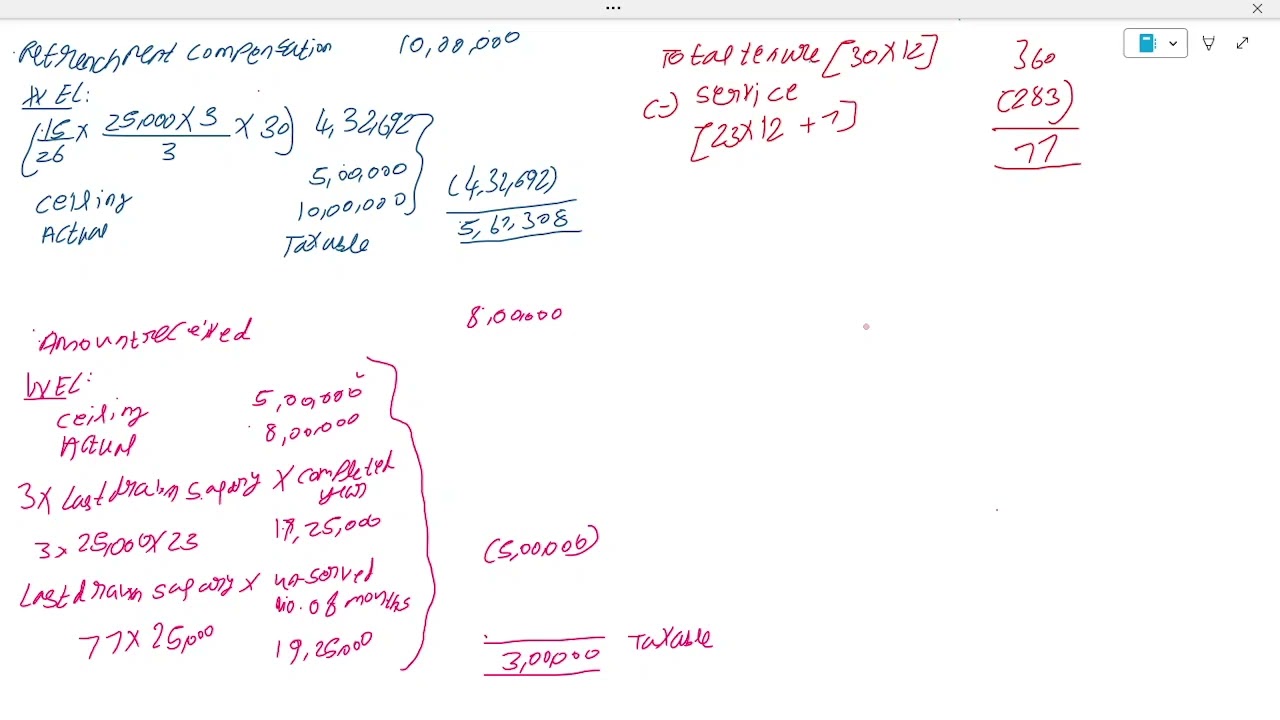 Retrenchment compensation 10,00,000
WEL:
(15/26 × 25,000 × 3/3 × 30) 4,32,692
Ceiling 5,00,000
Actual 10,00,000 (4,32,692)
Taxable 5,67,308
Total tenure [30×12] 360
(-) service (283)
[23×12 + 7] 77
Amount received 8,00,000
WEL:
Ceiling 5,00,000
Actual 8,00,000
3 × Last drawn salary × completed years
3 × 25,000 × 23 17,25,000
(5,00,000)
Last drawn salary × un-served no. of months
77 × 25,000 19,25,000
3,00,000 Taxable